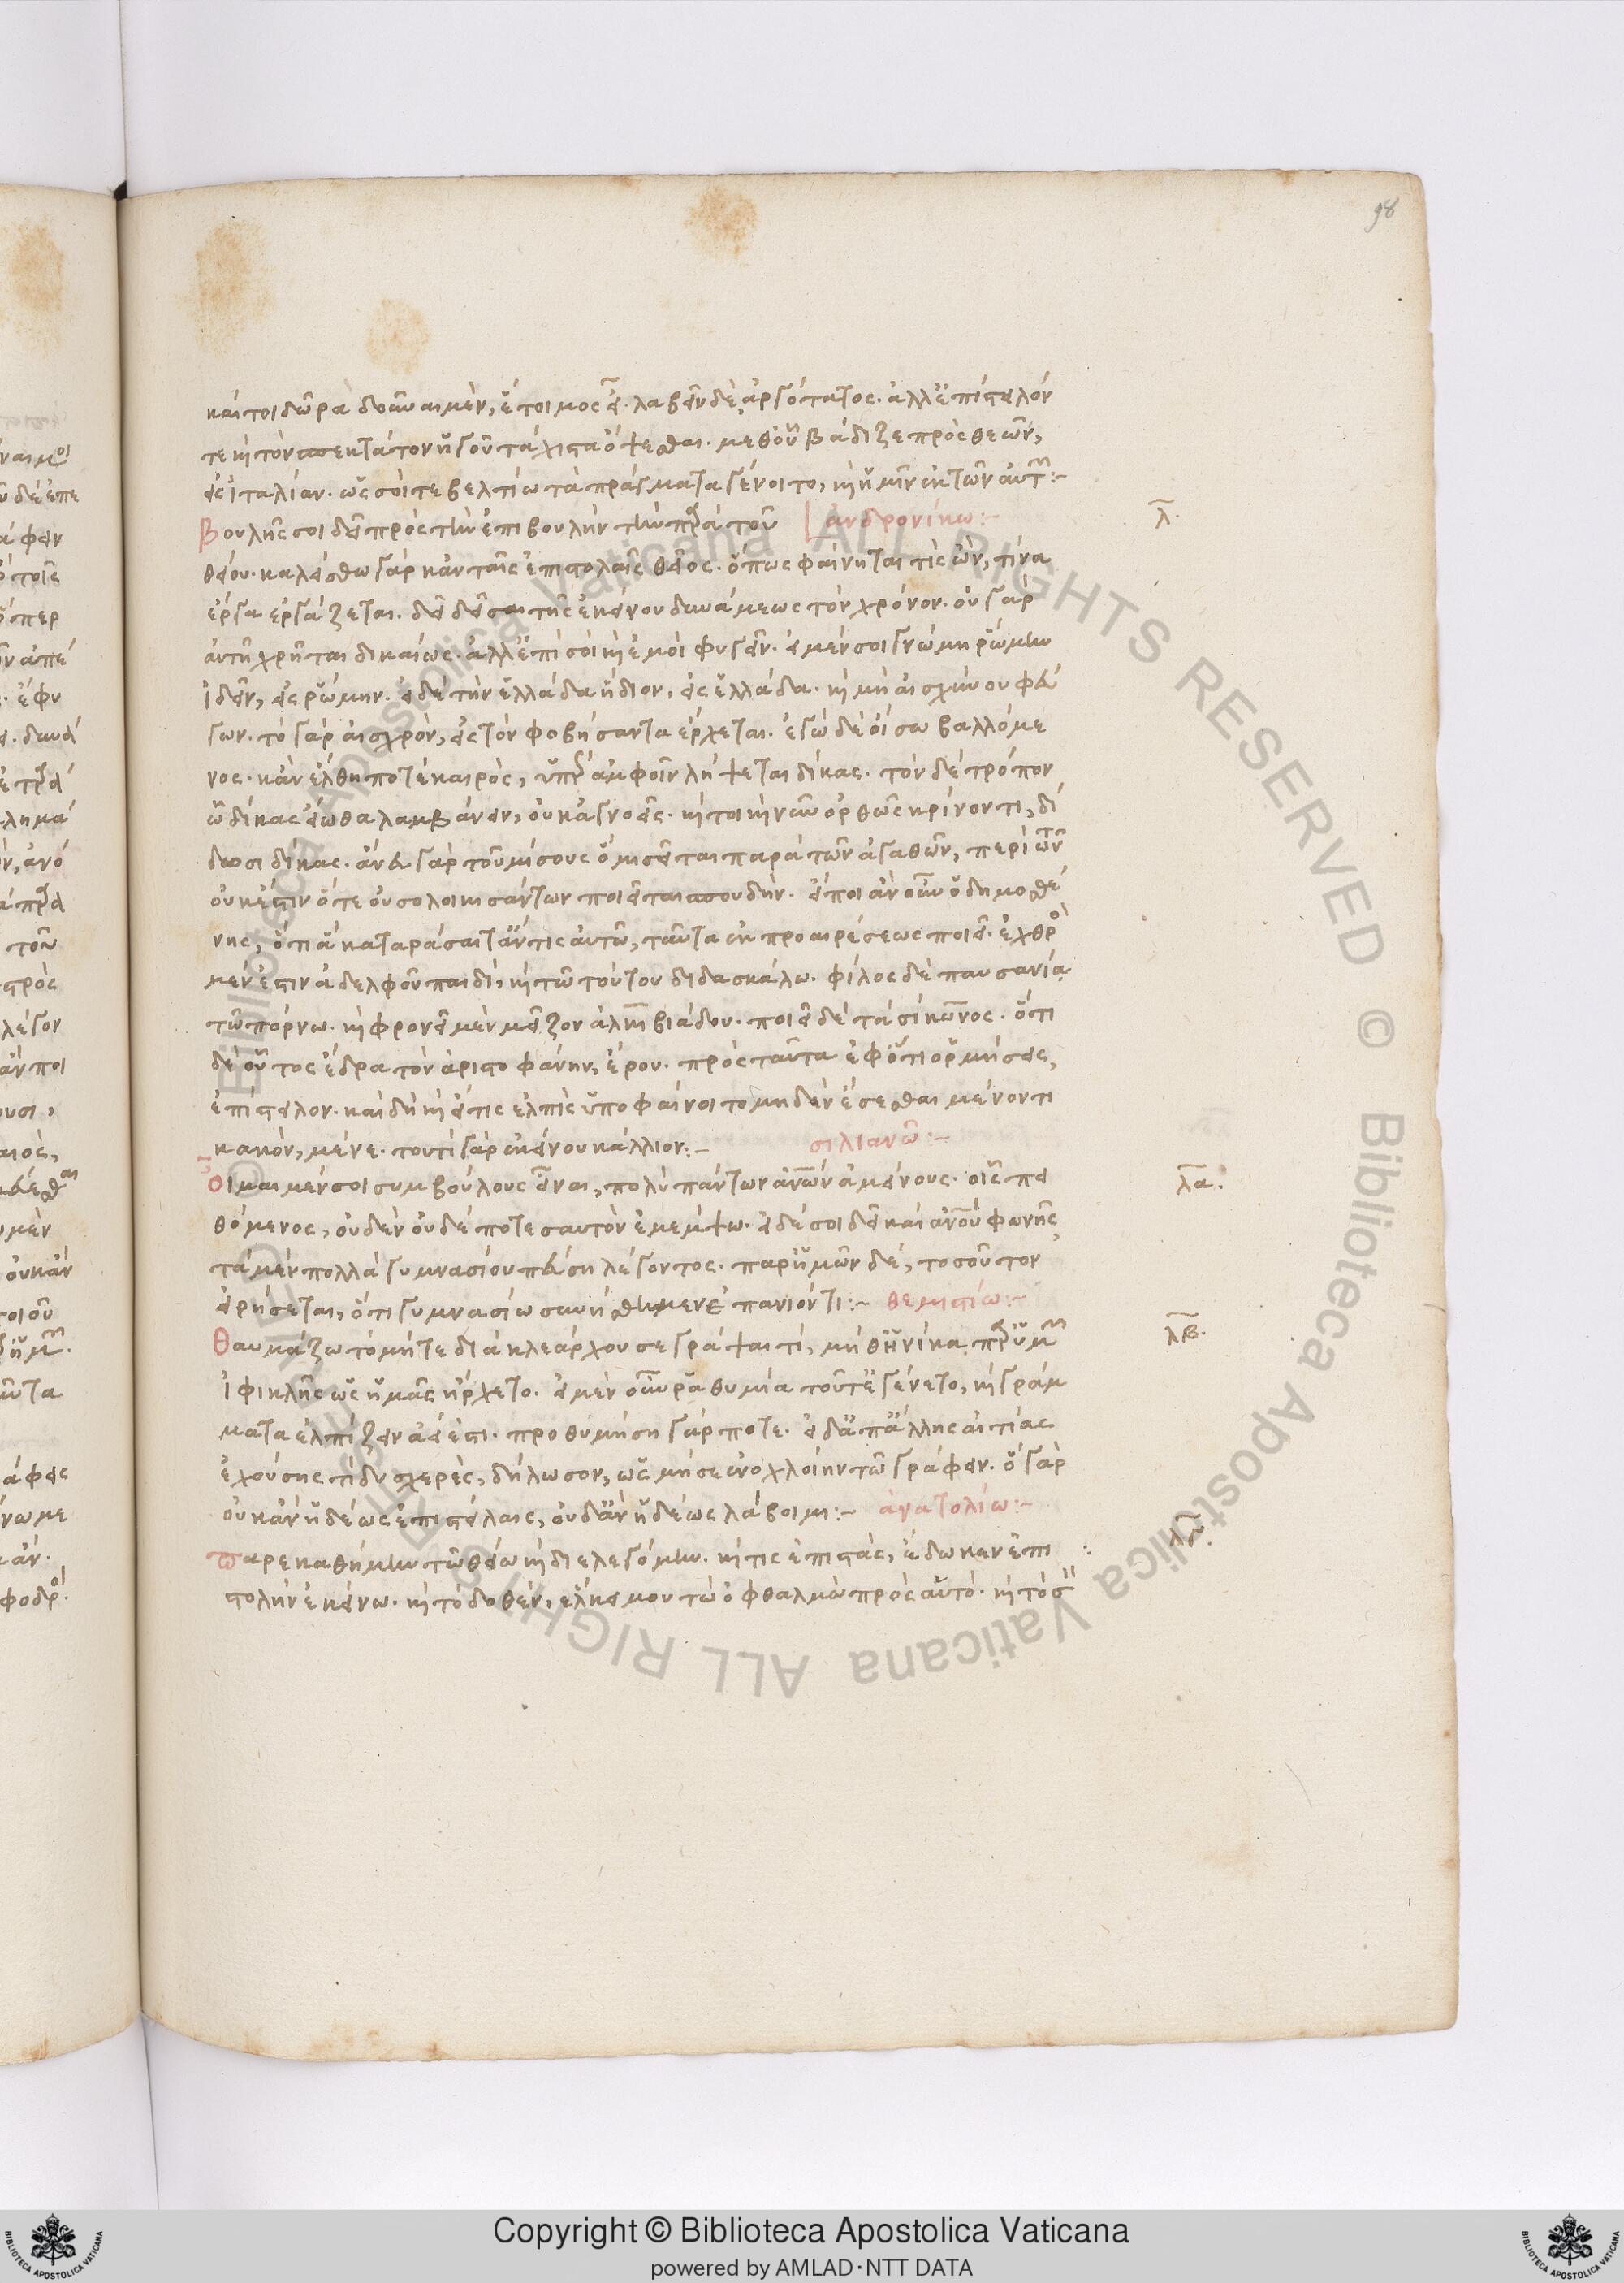 98
καίτοι δῶρα δοῦναι μὲν, ἕτοιμος εἶ. λαβεῖν δὲ, ἀργότατος. ἀλλ' ἐπίστελόν
τε καὶ τὸν πενιτάτον ἡγοῦ τάχιστα ὄψεσθαι. μεθ' οὗ βάδιζε πρὸς θεῶν,
εἰς ἰταλίαν. ὡς σοί τε βελτίω τὰ πράγματα γένοιτο, καὶ ἡμῖν ἐκ τῶν αὐτῶν:-
Βουλῆς σοι δεῖ πρὸς τὴν ἐπιβουλὴν τὴν παρὰ τοῦ ἀνδρονίκω:-
λ.
θείου. καλείσθω γὰρ κἀν ταῖς ἐπιστολαῖς θεῖος. ὅπως φαίνηται τίς ὢν, τίνα
ἔργα ἐργάζεται. δεῖ δεῖσαι τῆς ἐκείνου δυνάμεως τὸν χρόνον. οὐ γὰρ
αὐτῇ χρῆται δικαίως. ἀλλ' ἐπὶ σοὶ καὶ ἐμοὶ φυγεῖν. εἰ μέν σοι γνώμη ῥώμην
ἰδεῖν, εἰς ῥώμην. εἰ δὲ τὴν ἑλλάδα ἥδιον, εἰς ἑλλάδα. καὶ μὴ αἰσχύνου φεύ
γων. τὸ γὰρ αἰσχρὸν, εἰς τὸν φοβήσαντα ἔρχεται. ἐγὼ δὲ οἴσω βαλλόμε
νος. κἂν ἔλθῃ ποτὲ καιρὸς, ὑπὲρ ἀμφοῖν λήψεται δίκας. τὸν δὲ τρόπον
ᾧ δίκας εἴωθα λαμβάνειν, οὐκ ἀγνοεῖς. καίτοι καὶ νῦν ὀρθῶς κρίνοντι, δί
δωσι δίκας. ἄνευ γὰρ τοῦ μίσους ὃ μισεῖται παρὰ τῶν ἀγαθῶν, περὶ ὧν
οὐκ ἔστιν ὅτε οὐ σολοικισάντων ποιεῖται σπουδήν. εἴποι ἂν οὖν ὁ δημοσθέ
νης, ὅτι ἃ καταράσαιτ' ἄν τις αὐτῷ, ταῦτα ἐκ προαιρέσεως ποιεῖ. ἐχθρὸς
μέν ἐστιν ἀδελφοῦ παιδὶ, καὶ τῷ τούτου διδασκάλω. φίλος δὲ παυσανία
τῷ πόρνω. καὶ φρονεῖ μὲν μεῖζον ἀλκιβιάδου. ποιεῖ δὲ τὰ σίκωνος. ὅτι
δὲ οὗτος ἔδρα τὸν ἀριστοφάνην, ἔρου. πρὸς ταῦτα ἐφ' ὅτι ὁρμήσεις,
ἐπίστελον. καὶ δὴ καὶ εἴ τις ἐλπὶς ὑποφαίνοιτο μηδὲν ἔσεσθαι μένοντι
κακὸν, μένε. τουτὶ γὰρ ἐκείνου κάλλιον:- σιλιανῷ:-
Οἶμαι μέν σοι συμβούλους εἶναι, πολὺ πάντων ἀνθρώπων ἀμείνους. οἷς πει
λα.
θόμενος, οὐδὲν οὐδέποτε σαυτὸν ἐμέμψω. εἰ δέ σοι δεῖ καὶ ἀνθρώπου φωνῆς,
τὰ μὲν πολλὰ γυμνασίου πεύσῃ λέγοντος. παρ' ἡμῶν δὲ, τοσοῦτον
εἰρήσεται, ὅτι γυμνασίω συνήσθημεν ἐπανιόντι:- θεμιστίω:-
Θαυμάζω τὸ μήτε διὰ κλεάρχου σε γράψαι τί, μήθ' ἡνίκα παρ' ὑμῶν
λβ.
ἰφικλῆς ὡς ἡμᾶς ἤρχετο. εἰ μὲν οὖν ῥαθυμία τοῦτ' ἐγένετο, καὶ γράμ
ματα ἐλπίζειν ἀεί ἐστι. προθυμήσῃ γάρ ποτε. εἰ δ' ἀπ' ἄλλης αἰτίας
ἐχούσης τι δυσχερὲς, δήλωσον, ὡς μή σε ἐνοχλοίην τῷ γράφειν. ὃ γὰρ
οὐκ ἂν ἡδέως ἐπιστείλαις, οὐδ' ἂν ἡδέως λάβοιμι:- ἀνατολίω:-
Παρεκαθήμην τῷ θείω καὶ διελεγόμην. καί τις ἐπιστὰς, ἔδωκεν ἐπι
στολὴν ἐκείνω. καὶ τὸ δοθὲν, εἷλκέ μου τὼ ὀφθαλμὼ πρὸς αὐτό. καὶ τὸ σ